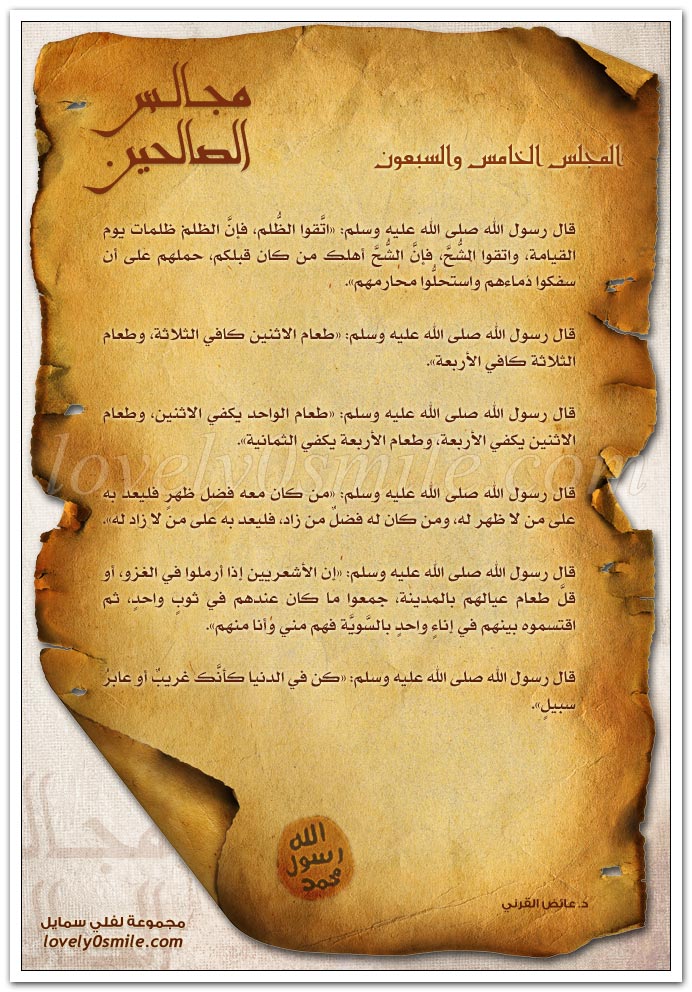 مجالس
الصالحين
المجلس الخامس والسبعون
قال رسول الله صلى الله عليه وسلم: «اتَّقوا الظُّلم، فإنَّ الظلمَ ظلمات يوم
القيامة، واتقوا الشُّحَّ، فإنَّ الشُّحَّ أهلك من كان قبلكم، حملهم على أن
سفكوا دُماءهم واستحلُّوا محارمهم».
قال رسول الله صلى الله عليه وسلم: «طعام الاثنين كافي الثلاثة، وطعام
الثلاثة كافي الأربعة».
قال رسول الله صلى الله عليه وسلم: «طعام الواحد يكفي الاثنين، وطعام
الاثنين يكفي الأربعة، وطعام الأربعة يكفي الثمانية».
lovely0smile.com
قال رسول الله صلى الله عليه وسلم: «من كان معه فضل ظهرٍ فليعد به
على من لا ظهر له، ومن كان له فضلٌ من زاد، فليعد به على من لا زاد له».
قال رسول الله صلى الله عليه وسلم: «إن الأشعريين إذا أرملوا في الغزو، أو
قلَّ طعام عيالهم بالمدينة، جمعوا ما كان عندهم في ثوبٍ واحدٍ، ثم
اقتسموه بينهم في إناءٍ واحدٍ بالسَّويَّة فهم مني وُأنا منهم».
قال رسول الله صلى الله عليه وسلم: «كن في الدنيا كأنَّك غريبٌ أو عابرُ
سبيلٍ».
الله
رسول
محمد
د.عائض القرني
مجالس
الصالحين
مجموعة لفلي سمايل
lovely0smile.com